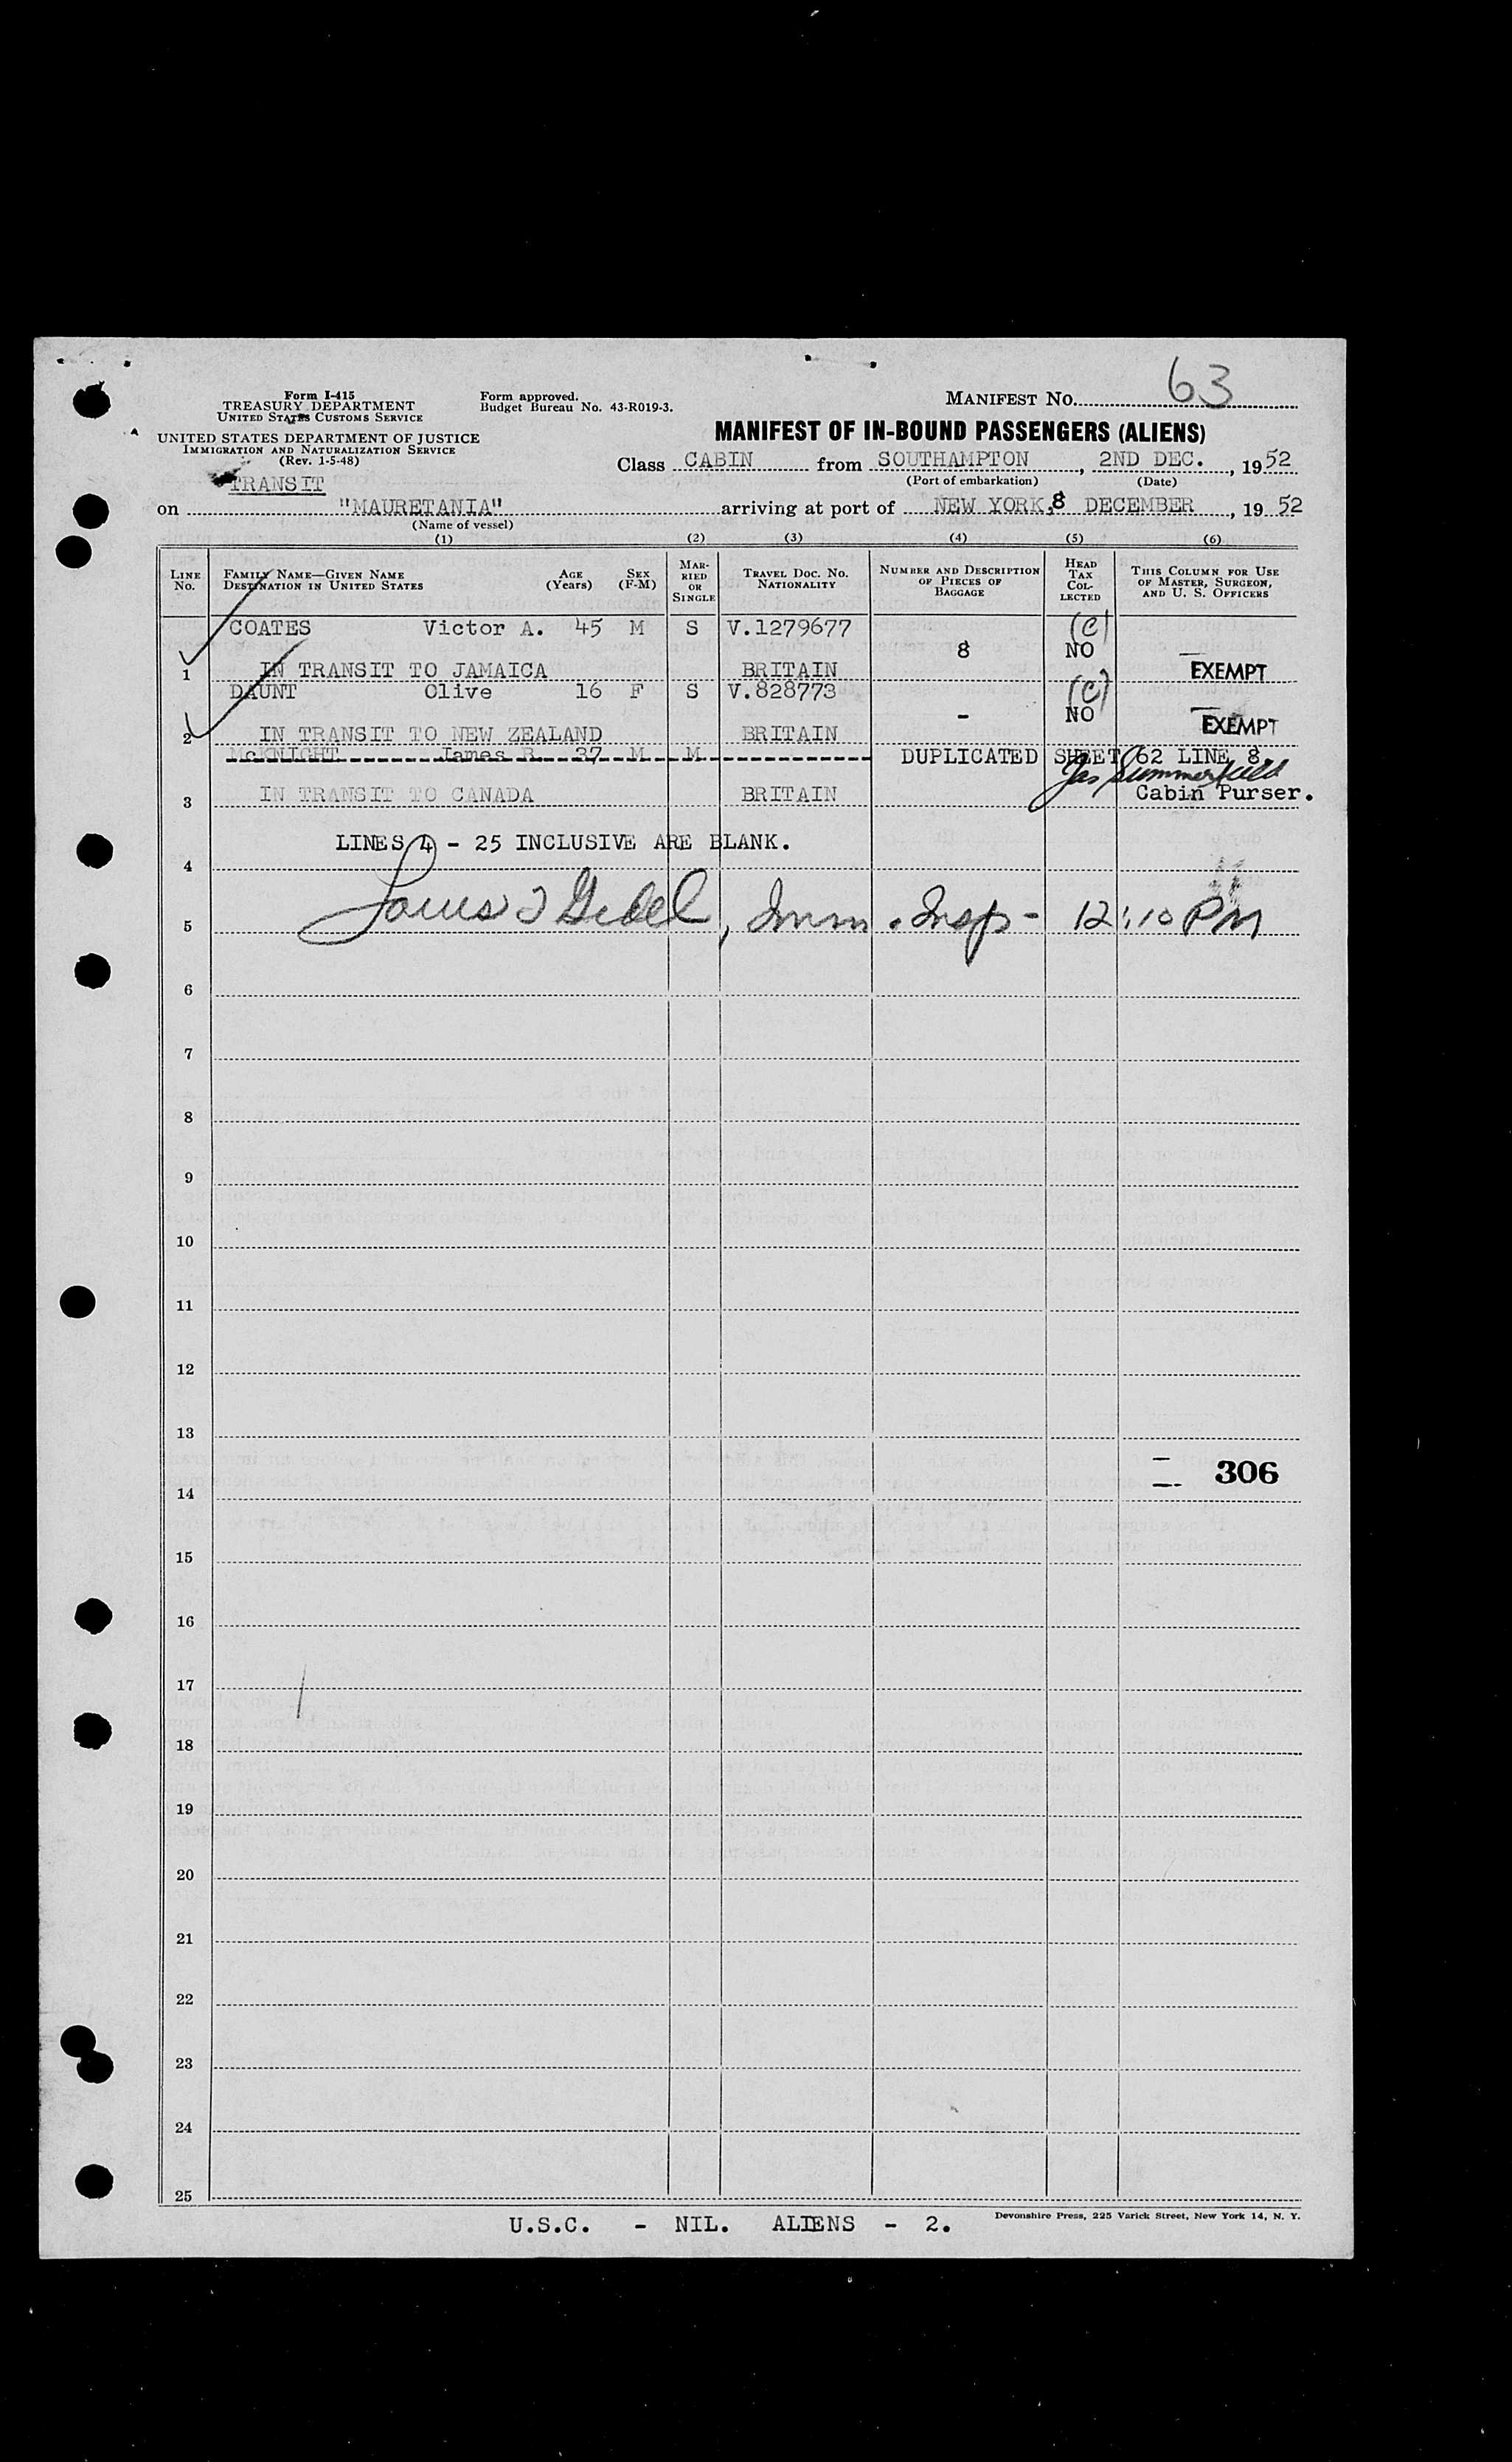 63
Form I-415
TREASURY DEPARTMENT
UNITED STATES CUSTOMS SERVICE
Form approved.
Budget Bureau No. 43-R019-3.
MANIFEST NO.
UNITED STATES DEPARTMENT OF JUSTICE
IMMIGRATION AND NATURALIZATION SERVICE
(Rev. 1-5-48)
MANIFEST OF IN-BOUND PASSENGERS (ALIENS)
Class CABIN from SOUTHAMPTON, 2ND DEC., 1952
(Port of embarkation) (Date)
TRANSIT
on "MAURETANIA" arriving at port of NEW YORK, 8 DECEMBER, 1952
(Name of vessel)
(1) (2) (3) (4) (5) (6)
LINE NO. FAMILY NAME—GIVEN NAME DESTINATION IN UNITED STATES AGE (Years) SEX (F-M) MARRIED OR SINGLE TRAVEL DOC. NO. NATIONALITY NUMBER AND DESCRIPTION OF PIECES OF BAGGAGE HEAD TAX COLLECTED THIS COLUMN FOR USE OF MASTER, SURGEON, AND U. S. OFFICERS
COATES Victor A. 45 M S V.1279677 (C)
8 NO
1 IN TRANSIT TO JAMAICA BRITAIN EXEMPT
DAUNT Olive 16 F S V.828773 (C)
- NO
2 IN TRANSIT TO NEW ZEALAND BRITAIN EXEMPT
McKNIGHT James R. 37 M M DUPLICATED SHEET 62 LINE 8.
Jas Summerfield
3 IN TRANSIT TO CANADA BRITAIN Cabin Purser.
LINES 4 - 25 INCLUSIVE ARE BLANK.
4
5 , Imm. Insp - 12:10 PM
6
7
8
9
10
11
12
13
306
14
15
16
17
18
19
20
21
22
23
24
25
U.S.C. - NIL. ALIENS - 2.
Devonshire Press, 225 Varick Street, New York 14, N. Y.